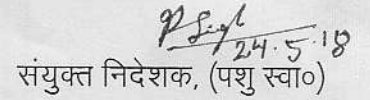 24.5.18
संयुक्त निदेशक, (पशु स्वा०)